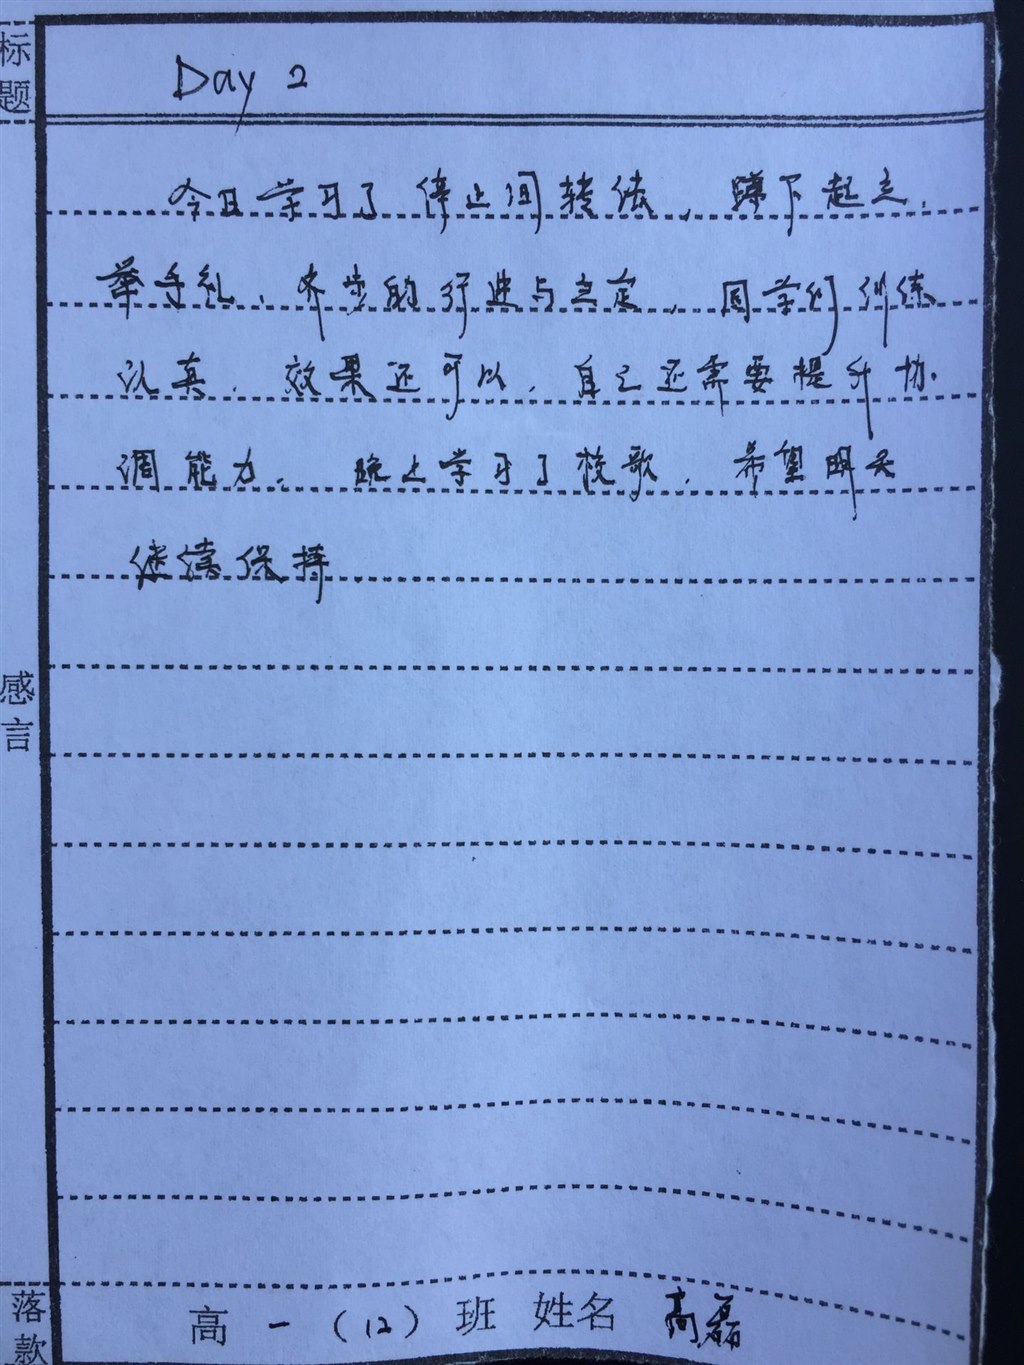 标题
Day 2
今日学习了停止间转法、蹲下起立、
举手礼、齐步的行进与立定，同学们训练
认真，效果还可以，自己还需要提升协
调能力。晚上学习了校歌，希望明天
继续保持
感言
落款
高一（12）班 姓名 高磊